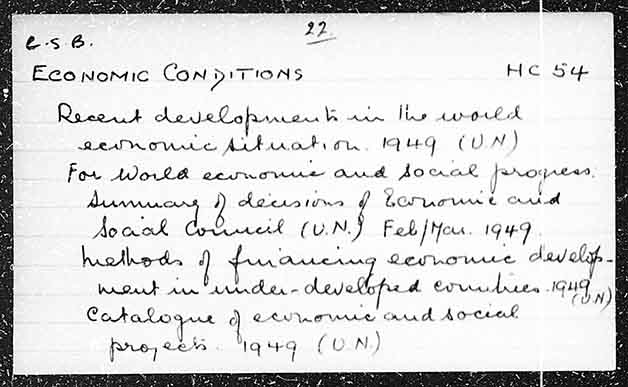 22
C.S.B.
ECONOMIC CONDITIONS HC 54
Recent developments in the world
economic situation. 1949 (U.N)
For World economic and social progress.
Summary of decisions of Economic and
Social Council (U.N.) Feb/Mar. 1949.
Methods of financing economic develop-
ment in under-developed countries. 1949
(U.N)
Catalogue of economic and social
projects. 1949 (U.N.)